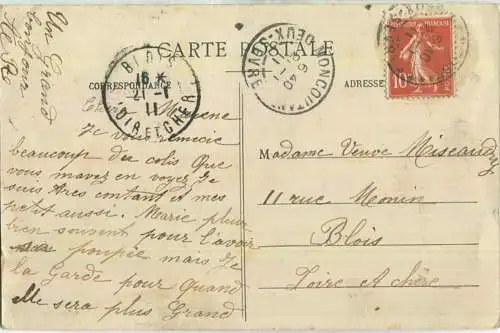 Un Grand
bonjour
CARTE POSTALE
CORRESPONDANCE
ADRESSE
BLOIS
LOIR-ET-CHER
MONCOUTANT
DEUX-SÈVRES
10
Chère Marraine
Je vous remercie
beaucoup du colis que
vous mavez en voyez Je
suis Ares contant et mes
petit aussi. Marie pleure
bien souvent pour l'avoir
sa poupée mais Je
la Garde pour quand
Elle sera plus Grand
Madame Veuve
11 rue Monin
Blois
Loire et chère